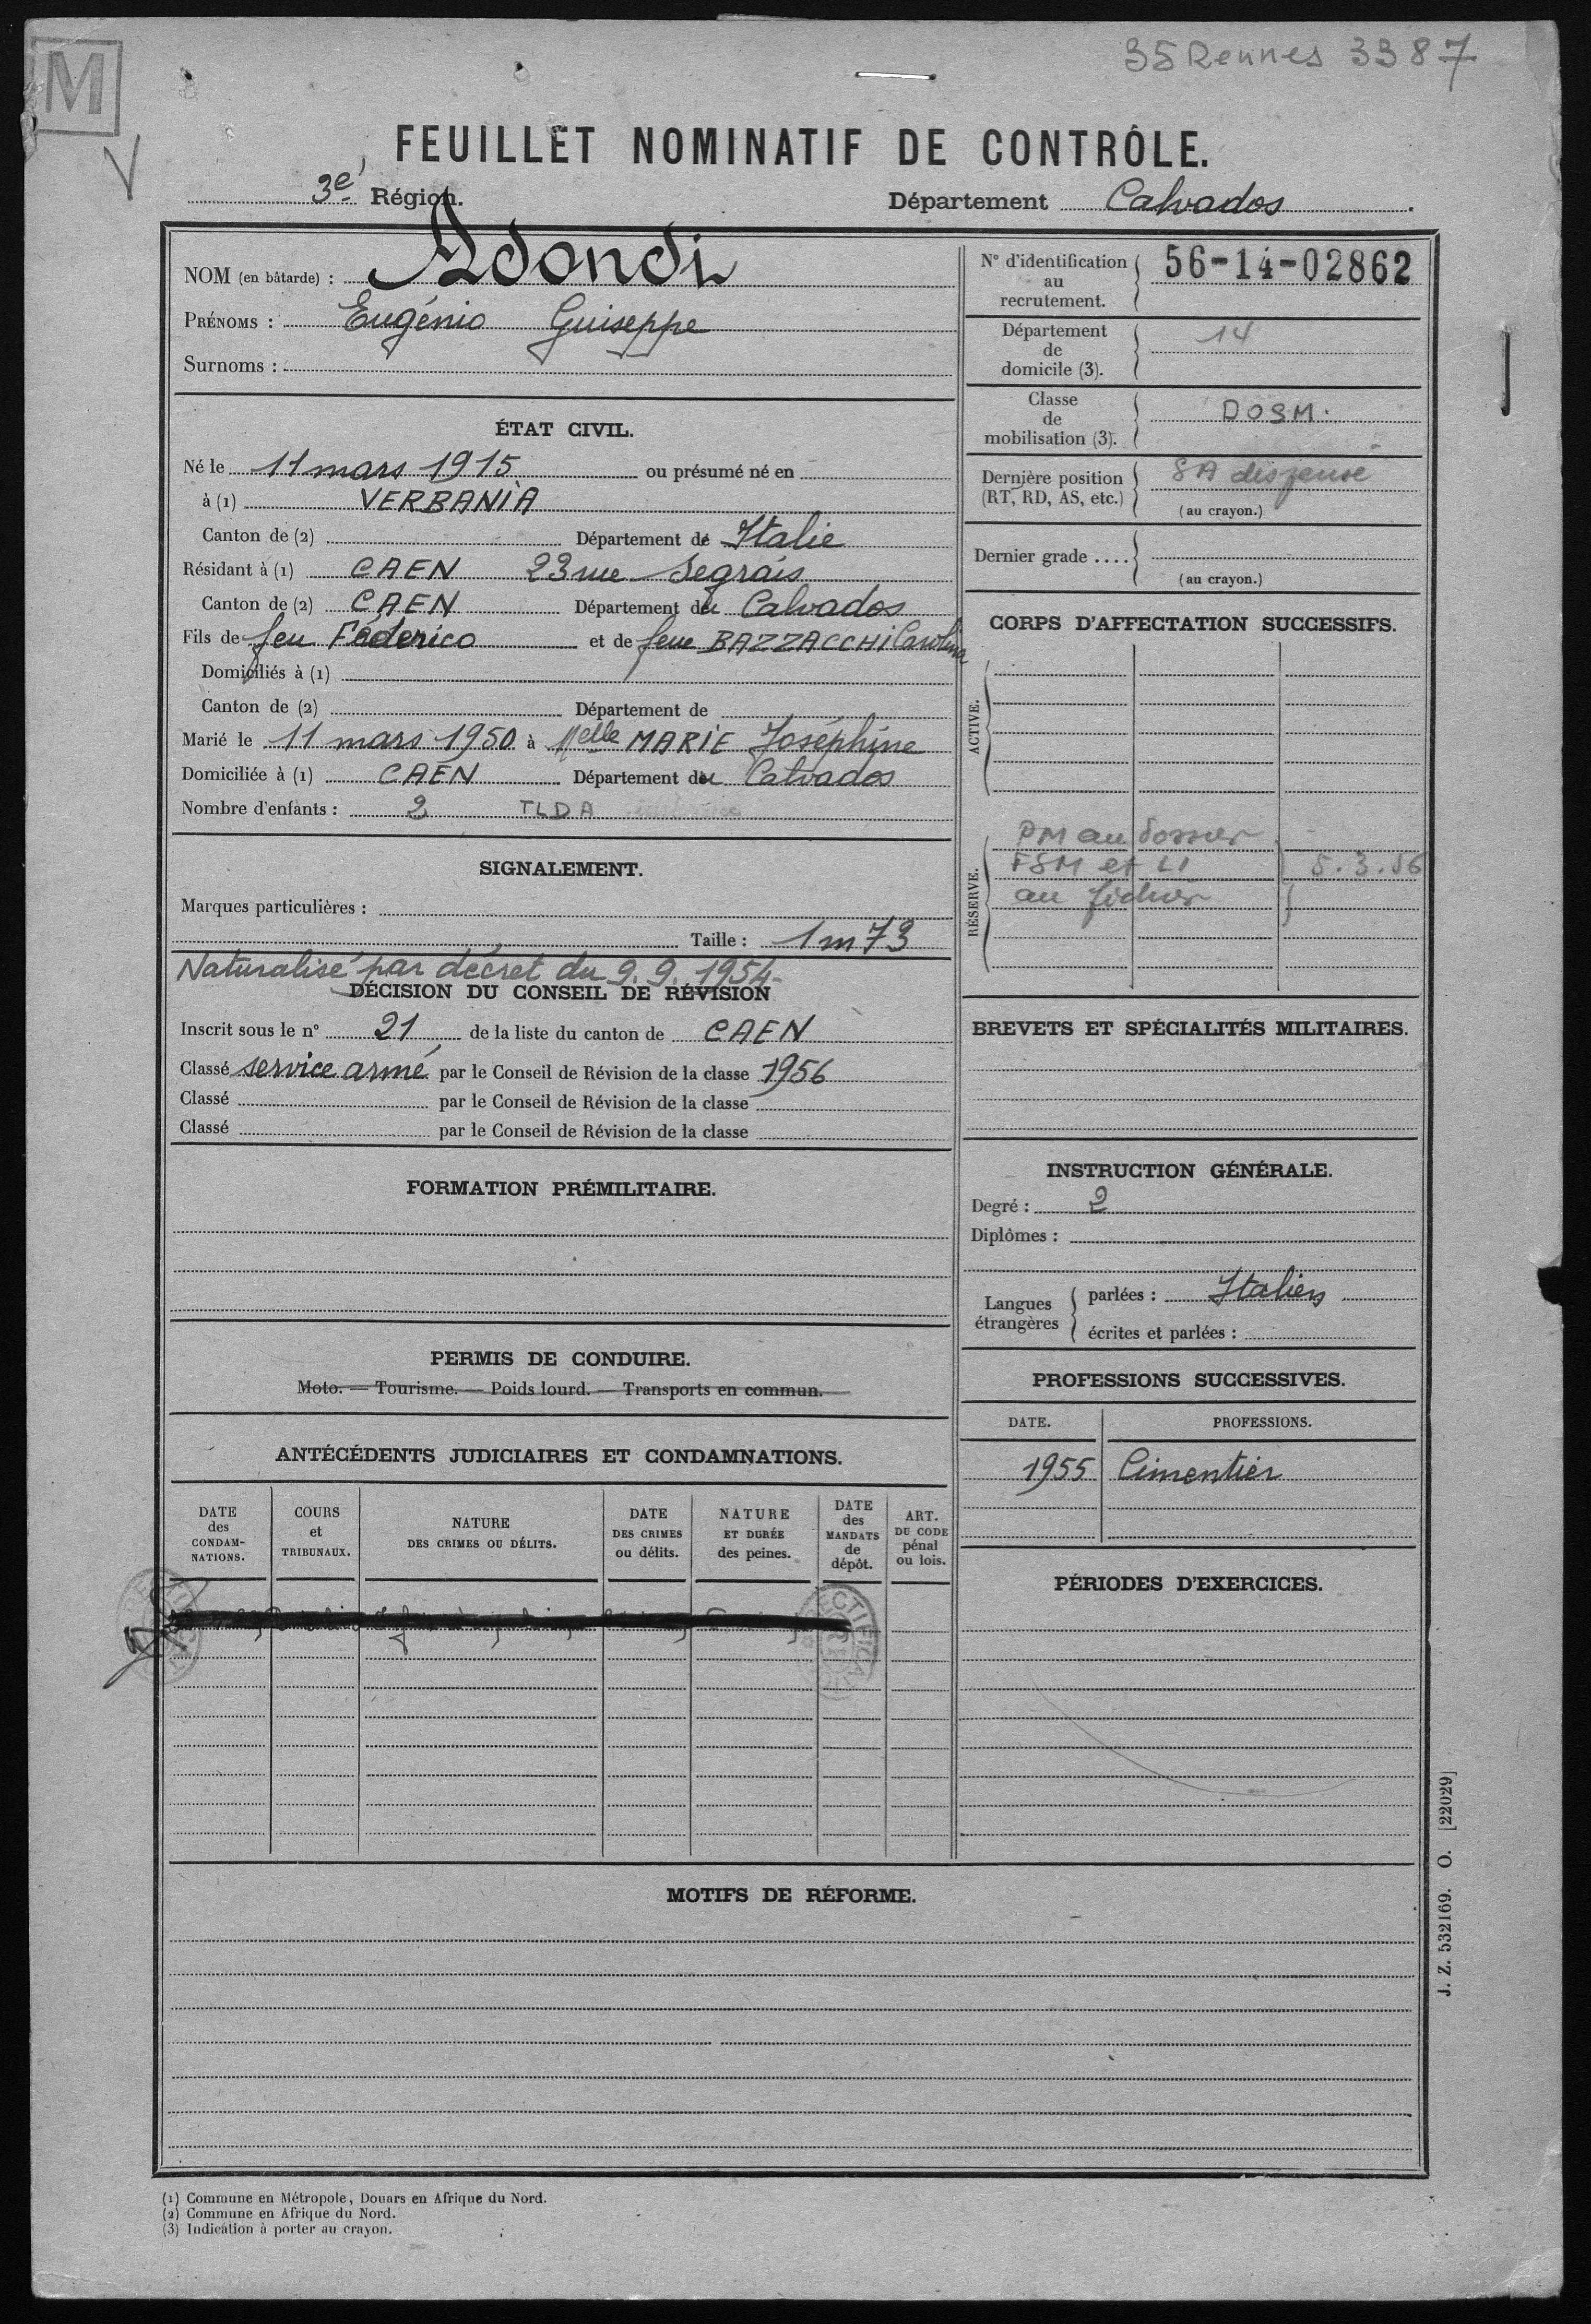 35 Rennes 3387
M
V
FEUILLET NOMINATIF DE CONTRÔLE.
3e Région.
Département Calvados.
NOM (en bâtarde) : Adondi
PRÉNOMS : Eugénio Guiseppe
Surnoms :
ÉTAT CIVIL.
Né le 11 mars 1915 ou présumé né en
à (1) VERBANIA
Canton de (2) Département de Italie
Résidant à (1) CAEN 23 rue Segrais
Canton de (2) CAEN Département du Calvados
Fils de feu Féderico et de feue BAZZACCHI Carolina
Domiciliés à (1)
Canton de (2) Département de
Marié le 11 mars 1950 à Melle MARIE Joséphine
Domiciliée à (1) CAEN Département du Calvados
Nombre d'enfants : 2 TLDA
SIGNALEMENT.
Marques particulières :
Taille : 1m73
Naturalisé par décret du 9.9.1954-
DÉCISION DU CONSEIL DE RÉVISION
Inscrit sous le n° 21 de la liste du canton de CAEN
Classé service armé par le Conseil de Révision de la classe 1956
Classé par le Conseil de Révision de la classe
Classé par le Conseil de Révision de la classe
FORMATION PRÉMILITAIRE.
PERMIS DE CONDUIRE.
Moto. — Tourisme. — Poids lourd. — Transports en commun.
ANTÉCÉDENTS JUDICIAIRES ET CONDAMNATIONS.
DATE
des
CONDAM-
NATIONS.
COURS
et
TRIBUNAUX.
NATURE
DES CRIMES OU DÉLITS.
DATE
DES CRIMES
ou délits.
NATURE
ET DURÉE
des peines.
DATE
des
MANDATS
de
dépôt.
ART.
DU CODE
pénal
ou lois.
N° d'identification
au
recrutement.
56-14-02862
Département
de
domicile (3).
14
Classe
de
mobilisation (3).
DOSM.
Dernière position
(RT, RD, AS, etc.)
SA dispensé
(au crayon.)
Dernier grade ....
(au crayon.)
CORPS D'AFFECTATION SUCCESSIFS.
ACTIVE.
RÉSERVE.
PM au dossier
FSM et LI 5.3.56
au fichier
BREVETS ET SPÉCIALITÉS MILITAIRES.
INSTRUCTION GÉNÉRALE.
Degré : 2
Diplômes :
Langues
étrangères
parlées : Italien
écrites et parlées :
PROFESSIONS SUCCESSIVES.
DATE. PROFESSIONS.
1955 Cimentier
PÉRIODES D'EXERCICES.
MOTIFS DE RÉFORME.
J. Z. 532169. O. [22029]
(1) Commune en Métropole, Douars en Afrique du Nord.
(2) Commune en Afrique du Nord.
(3) Indication à porter au crayon.